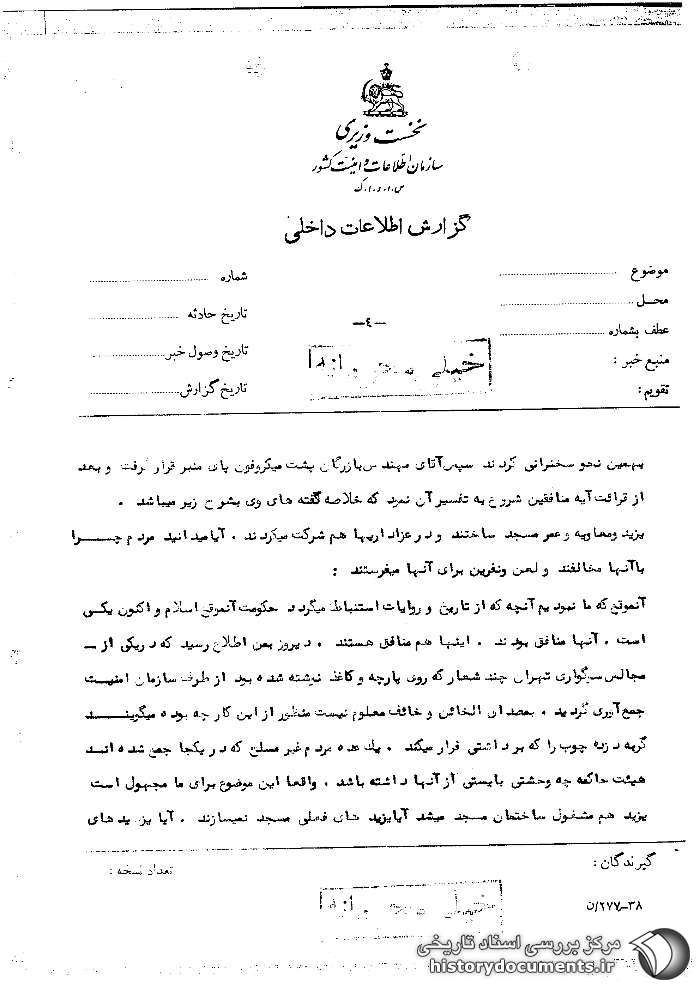 نخست وزیری
سازمان اطلاعات و امنیت کشور
س.ا.و.ا.ک
گزارش اطلاعات داخلی
موضوع
شماره
محل
تاریخ حادثه
عطف بشماره
ـ٤ـ
منبع خبر :
تاریخ وصول خبر
تقویم :
تاریخ گزارش
خیلی محرمانه
بهمین نحو سخنرانی کردند سپس آقای مهندس بازرگان پشت میکروفون پای منبر قرار گرفت و بعد
از قرائت آیه منافقین شروع به تفسیر آن نمود که خلاصه گفته های وی بشرح زیر میباشد .
یزید ومعاویه و عمر مسجد ساختند و در عزاداریها هم شرکت میکردند . آیامیدانید مردم چـــرا
باآنها مخالفند و لعن ونفرین برای آنها میفرستند :
آنموقع که ما نبودیم آنچه که از تاریخ و روایات استنباط میگردد حکومت آنموقع اسلام و اکنون یکی
است . آنها منافق بودند . اینها هم منافق هستند . دیروز بمن اطلاع رسید که دریکی از ـ
مجالس سوگواری تهران چند شعار که روی پارچه و کاغذ نوشته شده بود از طرف سازمان امنیت
جمع آوری گردید . بمصداق الخائن و خائف معلوم نیست منظور از این کار چه بوده میگوینـــد
گربه دزده چوب را که برداشتی فرار میکند . یك عده مردم غیر مسلح که در یکجا جمع شده انـد
هیئت حاکمه چه وحشتی بایستی از آنها داشته باشد . واقعا این موضوع برای ما مجهول است
یزید هم مشغول ساختمان مسجد میشد آیایزید های فعلی مسجد نمیسازند . آیا یزیدهای
گیرندگان :
تعداد نسخه :
۳۸ـ۲۷۷/ن
خیلی محرمانه
مرکز بررسی اسناد تاریخی
historydocuments.ir